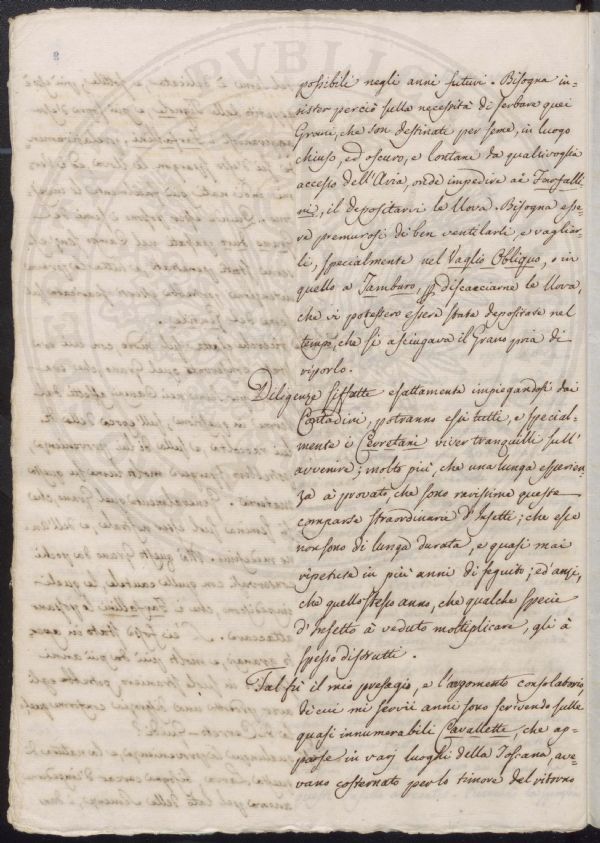 possibili negli anni futuri. Bisogna in-
sister perciò sulla necessità di serbare quei
Grani, che son destinati per seme, in luogo
chiuso, ed oscuro, e lontani da qualsivoglia
accesso dell'Aria, onde impedire ai Farfalli-
ni, il depositarvi le Uova. Bisogna esse-
re premurosi di ben ventilarli, e vagliar-
li, specialmente nel Vaglio Obliquo, o in
quello a Tamburo, p discacciarne le Uova,
che vi potessero essere state depositate nel
tempo, che si asciugava il Grano pria di
riporlo.
Diligenze siffatte esattamente impiegandosi dai
Contadini, potranno essi tutti, e special-
mente i Cerretani viver tranquilli sull'
avvenire; molto più, che una lunga esperien
za à provato, che sono rarissime queste
comparse straordinarie d'Insetti; che esse
non sono di lunga durata, e quasi mai
ripetute in più anni di seguito; ed anzi,
che quello stesso anno, che qualche specie
d'Insetto à veduto moltiplicare, gli à
spesso distrutti.
Tal fù il mio presagio, e l'argomento consolatorio,
di cui mi servii anni sono scrivendo sulle
quasi innumerabili Cavallette, che ap-
parse in varj luoghi della Toscana, ave-
vano costernato per lo timore del ritorno